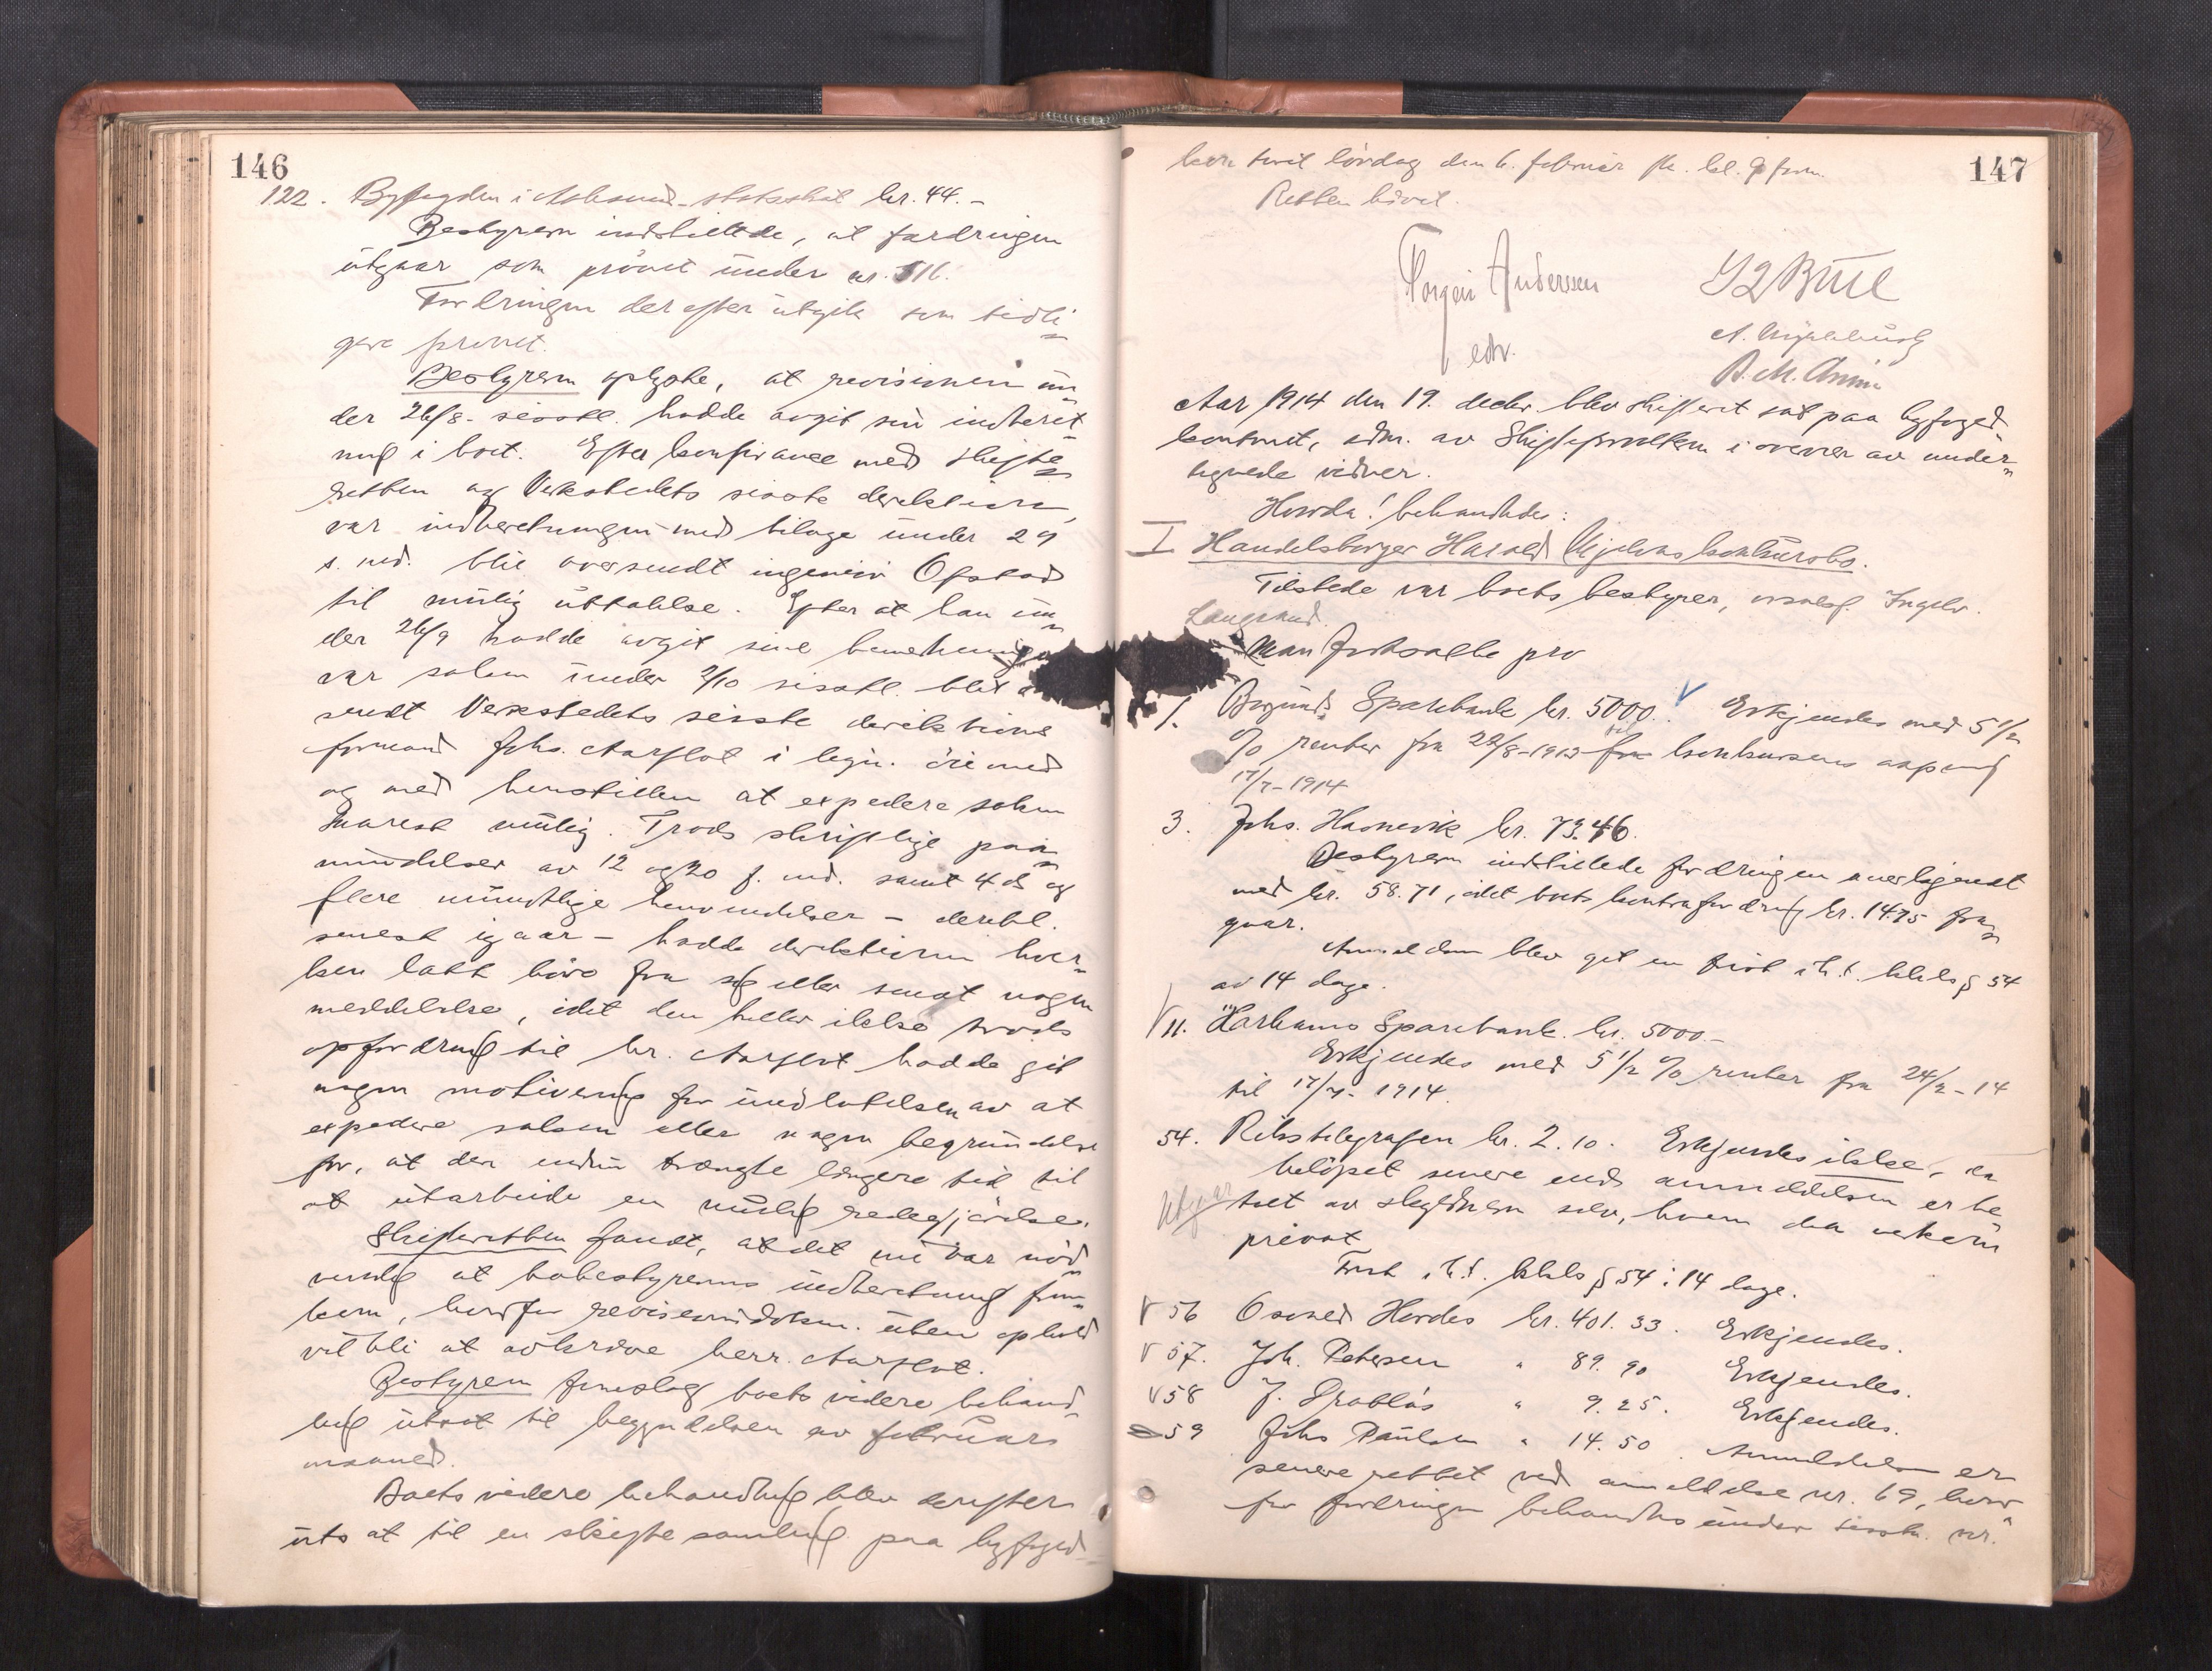 146
122. Byfogden i Aalesund - statsskat kr. 44.-
Bestyreren indstillede, at fordringen
utgaar som prövet under nr. 116.
Fordringen derefter utgik som tidli
gere prövet.
Bestyreren oplyste, at revisionen un
der 26/8 - sisstl. hadde avgit sin indberet
ning i boet. Efter konferance med skifte
retten og Verkstedets sisste direktion,
var indberetningen med bilage under 29
s. md. blit oversendt ingeniör Ofstad
til mulig uttalelse. Efter at han un
der 26/9 hadde avgit sine bemerkninger
var saken under 2/10 sisstl. blit
sendt Verkstedets sisste direktions
formand Johs. Aarflot i öiemed
og med henstillen at expedere saken
snarest mulig. Trods skriftlige paa
mindelser av 12 og 20 f. md. samt 4 ds og
flere mundtlige henvendelser - deribl.
senest igaar - hadde direktionen hver
ken latt höre fra sig eller sendt nogen
meddelelse, idet den heller ikke trods
opfordring til hr. Aarflot hadde git
nogen motivering for undlatelsen av at
expedere saken eller nogen begrundelse
for, at den endnu trængte længere tid til
at utarbeide en mulig redegjörelse.
Skifteretten fandt, at det nu var nöd
vendig at bobestyrerens indberetning frem
kom, hvorfor revisionsdokum. uten ophold
vil bli at avkræve herr Aarflot.
Bestyreren foreslog boets videre behand
ling utsat til begyndelsen av februar
maaned.
Boets videre behandling blev derefter
utsat til en skiftesamling paa byfoged
147
kontoret lördag den 6. februar kl. 9 form.
Retten hævet.
Andersen
edv.
Aar 1914 den 19. decbr. blev skifteret sat paa byfoged
kontoret, adm. av Skifteforvalteren i overvær av under
tegnede vidner.
Hvorda! behandledes:
I Handelsborger Harald konkursbo.
Tilstede var boets bestyrer, Ingolv.
Langeland.
Man fortsatte prö
1. Borgund Sparebank kr. 5000. Erkjendes med 5 1/2
% renter fra 22/8-1913 fra til konkursens aapning
17/7-1914
3. Johs. Havnevik kr. 73.46.
Bestyreren indstillede fordringen anerkjendt
med kr. 58.71, idet boets kontrafordring kr. 14.75 fra
gaar.
Anmelderen blev git en frist i h.t. kkls § 54
av 14 dage.
V 11. Harhams Sparebank kr. 5000.-
Erkjendes med 5 1/2 % renter fra 24/2-14
til 17/7-1914.
54. Rikstelegrafen kr. 2.10. Erkjendes ikke, da
belöpet senere end anmeldelsen er be
Utgaar talt av skyldneren selv, hvem den vedkom
privat
Frist i h.t. kkls § 54: 14 dage.
V 56 Osvald Hordes kr. 401.33. Erkjendes.
V 57. Joh. Petersen " 89.90 Erkjendes.
V 58 J. Drabløs " 9.25. Erkjendes.
59 Johs Paulsen " 14.50. Anmeldelsen er
senere rettet ved anmeldelse nr. 69, hvor
for fordringen behandles under sisstn. nr.